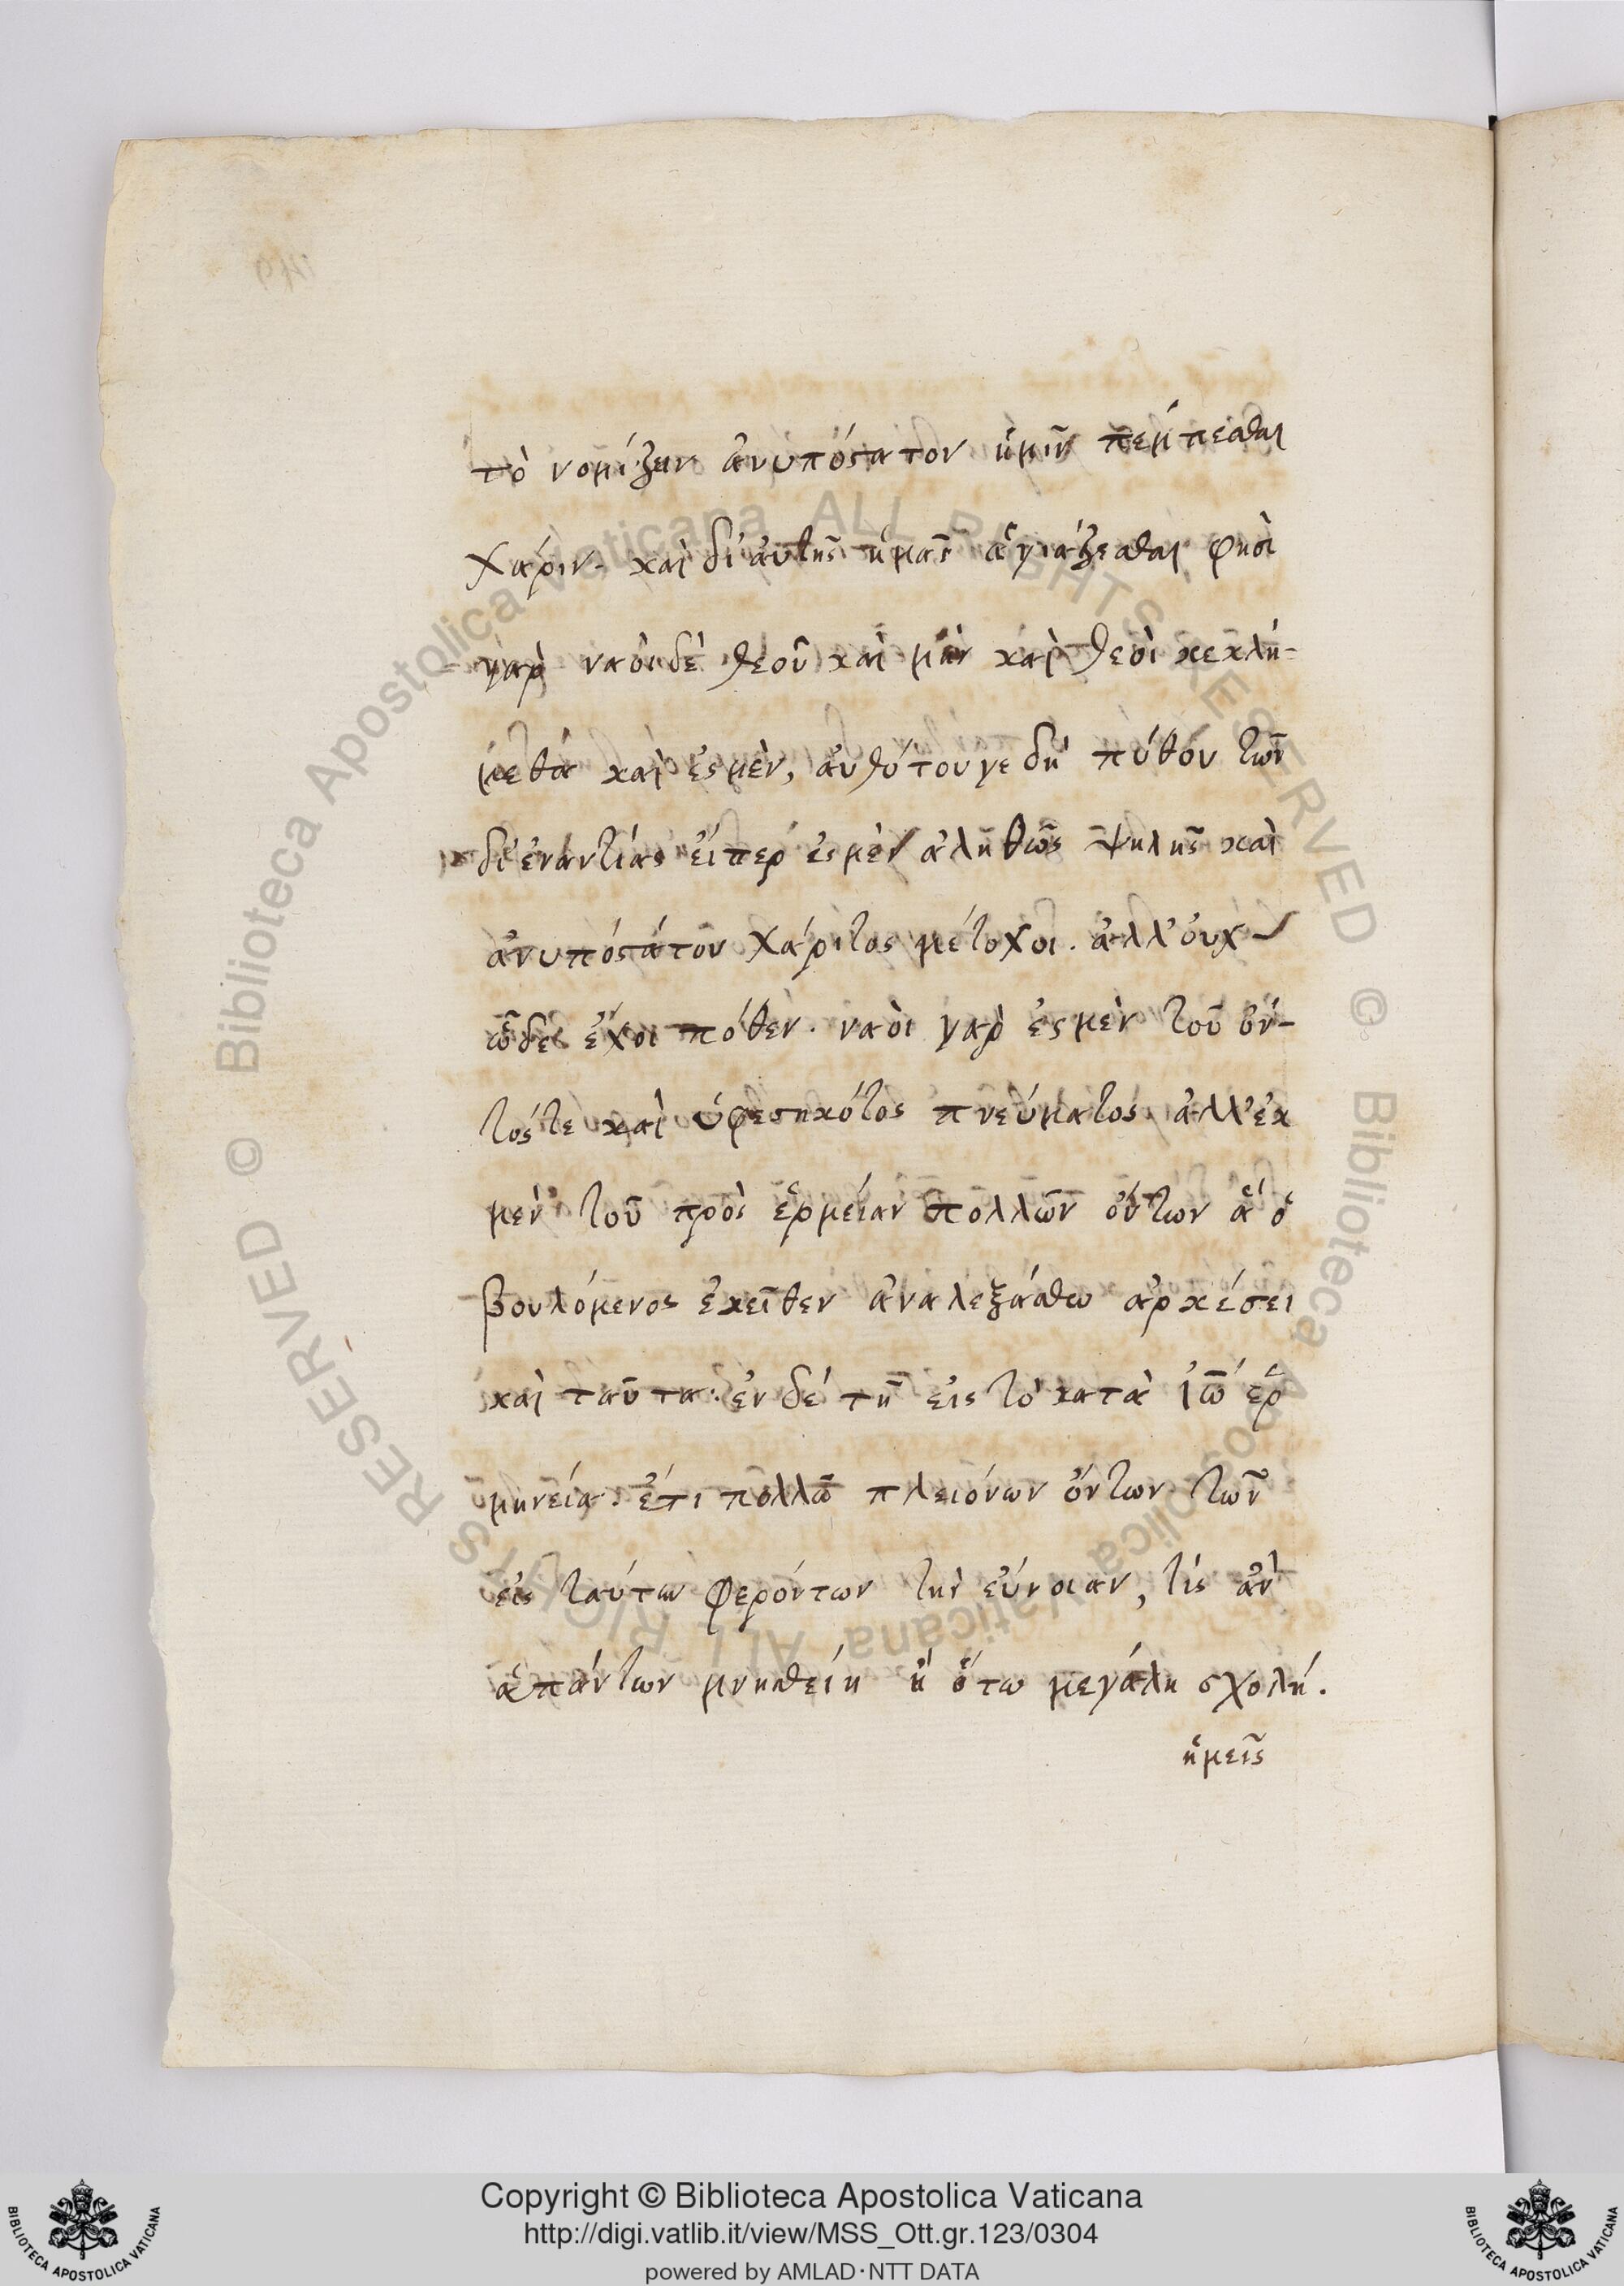 τὸ νομίζειν ἀνυπόστατον ἡμῖν πέμπεσθαι
χάριν. καὶ δι' αὐτῆς ἡμᾶς ἁγιάζεσθαι φησὶ
γὰρ ναοὶ δὲ θεοῦ καὶ μὴν καὶ θεοὶ κεκλή-
μεθα καὶ ἐσμὲν, ἀνθότου γε δὴ πύθου τῶν
δι' ἐναντίας εἴπερ ἐσμὲν ἀληθῶς ψιλῆς καὶ
ἀνυποστάτου χάριτος μέτοχοι. ἀλλ' οὐχ
ὧδε ἔχοι πόθεν. ναοὶ γὰρ ἐσμὲν τοῦ ὄν-
τός τε καὶ ὑφεστηκότος πνεύματος. ἀλλ' ἐκ
μὲν τοῦ πρὸς ἑρμείαν πολλῶν ὄντων ἅ ὁ
βουλόμενος ἐκεῖθεν ἀναλεξάσθω ἀρκέσει
καὶ ταῦτα. ἐν δὲ τῇ εἰς τὸ κατὰ ἰω̅ ἑρ
μηνεία. ἔτι πολλῷ πλειόνων ὄντων τῶν
εἰς ταύτην φερόντων τὴν εὔνοιαν, τίς ἂν
ἁπάντων μνησθείη ἢ ὅτω μεγάλη σχολή.
ἡμεῖς
Copyright © Biblioteca Apostolica Vaticana
http://digi.vatlib.it/view/MSS_Ott.gr.123/0304
powered by AMLAD·NTT DATA